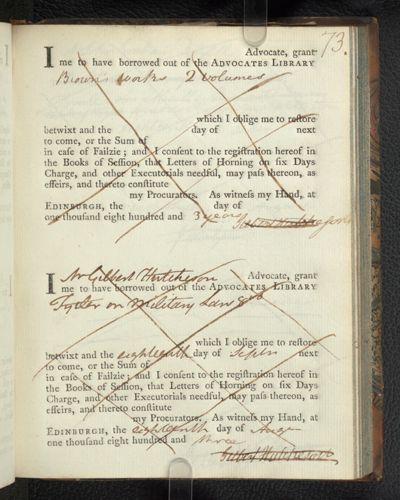 73.
I Advocate, grant
me to have borrowed out of the ADVOCATES LIBRARY
Browns works 2 volumes
which I oblige me to restore
betwixt and the day of next
to come, or the Sum of
in case of Failzie; and I consent to the registration hereof in
the Books of Session, that Letters of Horning on six Days
Charge, and other Executorials needful, may pass thereon, as
effeirs, and thereto constitute
my Procurators. As witness my Hand, at
EDINBURGH, the day of
one thousand eight hundred and 3 years
I Mr Gilbert Hutcheson Advocate, grant
me to have borrowed out of the ADVOCATES LIBRARY
Tytler on Military Law 8vo
which I oblige me to restore
betwixt and the eighteenth day of Septr next
to come, or the Sum of
in case of Failzie; and I consent to the registration hereof in
the Books of Session, that Letters of Horning on six Days
Charge, and other Executorials needful, may pass thereon, as
effeirs, and thereto constitute
my Procurators. As witness my Hand, at
EDINBURGH, the eighteenth day of
one thousand eight hundred and three
Gilbert Hutcheson